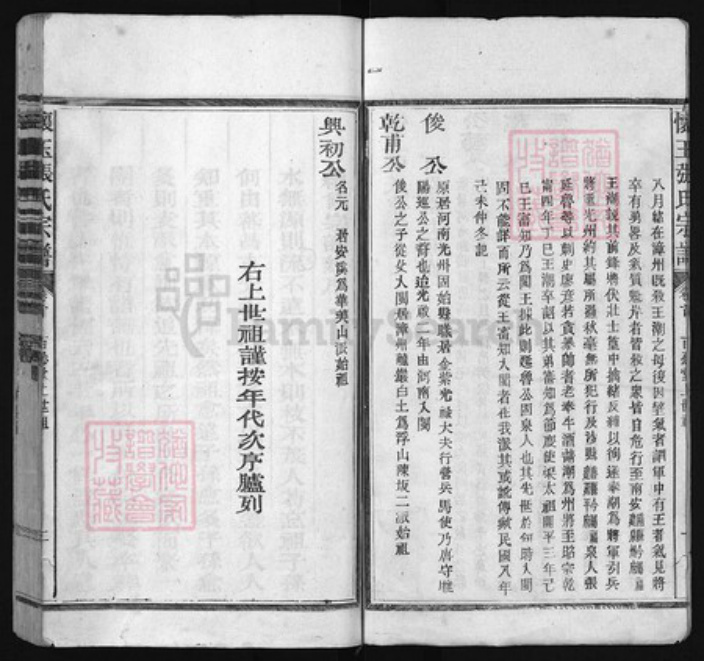 懷玉張氏宗譜
八月緒在漳州既殺王潮之母後因望氣者謂軍中有王者氣見將
卒有勇畧及氣質魁岸者皆殺之衆皆自危行至南安
王潮說其前鋒將伏壯士篁中擒緒反縛以徇遂奉潮為將軍引兵
將還光州約其屬所過秋毫無所犯行及沙縣泉人張
延魯等以刺史廖彥若貪暴帥耆老奉牛酒請潮為州將至昭宗乾
寧四年丁巳王潮卒詔以其弟審知為節度使梁太祖開平三年己
巳王審知乃為閩王據此則延魯公固泉人也其先世於何時入閩
固不能詳而所云從王審知入閩者在我派其或訛傳歟民國八年
己未仲冬記
俊公
原居河南光州固始縣職居金紫光祿大夫行營兵馬使乃唐守睢
陽巡公之裔也追光啟二年由河南入閩
乾甫公
俊公之子從父入閩居漳州龍巖白土為浮山陳坂二派始祖
興初公
名元 居安溪為華美山派始祖
右上世祖謹按年代次序臚列
懷玉張氏宗譜
FamilySearch